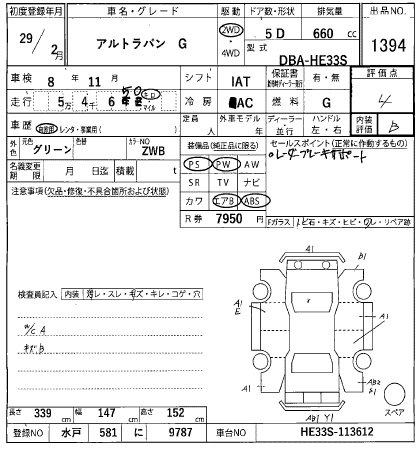 初度登録年月 車名・グレード 駆動 ドア数・形状 排気量 出品NO.
29/2月 アルトラパン G 2WD・4WD 5D 660cc 1394
型式 DBA-HE33S
車検 8 11月 シフト IAT 保証書 有・無 評価点
走行 5万4千6 50 キロ マイル 冷房 AC 燃料 G 4
車歴 自家用 レンタ・事業用( ) 定員 人 外車モデル 年 ディーラー・並行 ハンドル 左・右 内装評価 B
外色 元色 グリーン 色替 カラーNO ZWB 装備品(純正品に限る) セールスポイント(正常に作動するもの)
PS PW AW レーダーブレーキサポート
名義変更期限 月 日迄 積載 t SR TV ナビ
注意事項(欠品・修復・不具合箇所および状態) カワ エアB ABS
R券 7950円 Fガラス トビ石・キズ・ヒビ・ワレ・リペア跡
検査員記入 内装 薄レ・スレ・キズ・キレ・コゲ・穴
W/C A
キズB
A1
B1
A1
E
A1
A1
AB2
E1
AB1 Y1
スペア
長さ 339cm 幅 147cm 高さ 152cm
登録NO 水戸 581 に 9787 車台NO HE33S-113612